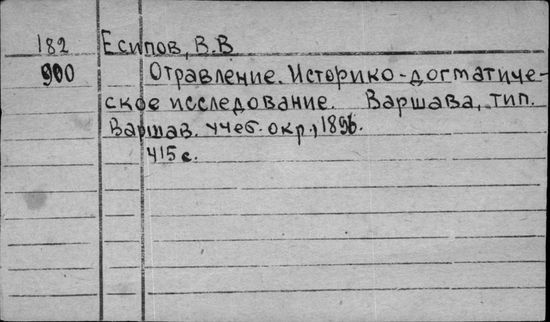 182 Есипов, В.В
900 Отравление. Историко-догматиче-
ское исследование. Варшава, тип.
Варшав. учеб. окр., 1896.
415 с.